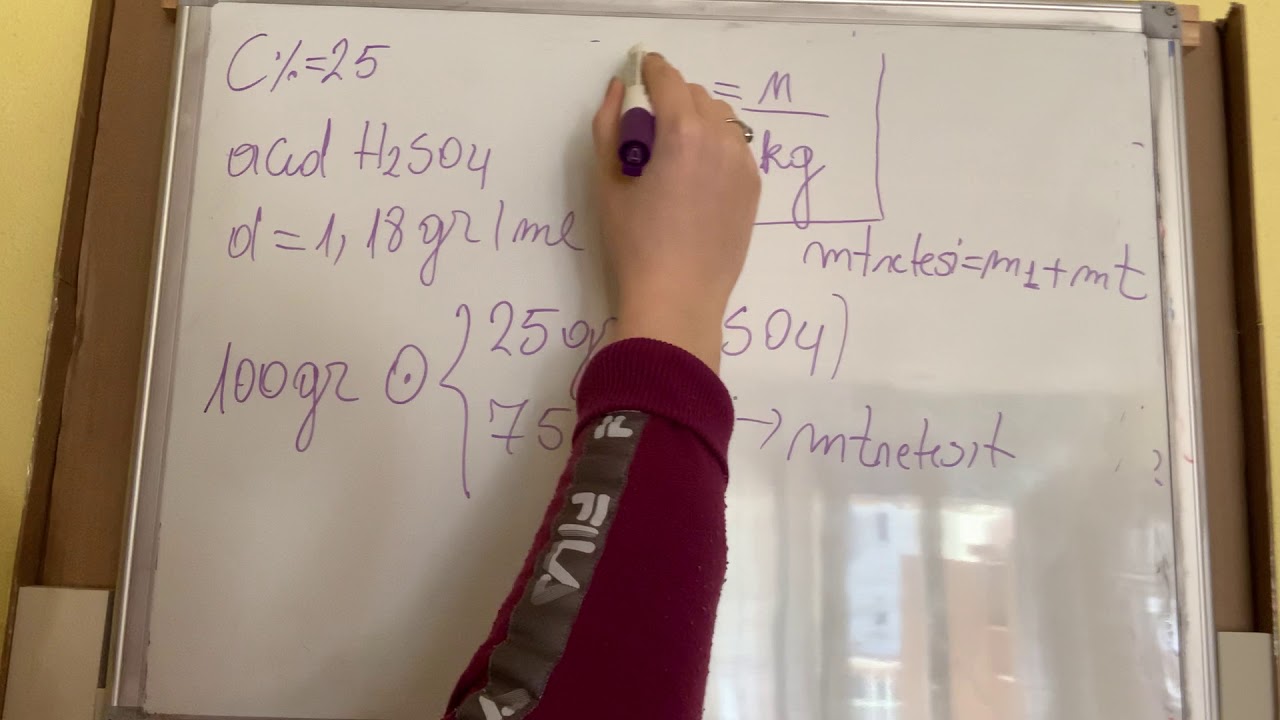 C%=25
acid H2SO4
d=1,18gr/ml
= n
kg
mtretesi=m1+mt
100gr ⊙ { 25g SO4)
75 → mtretesit
FILA